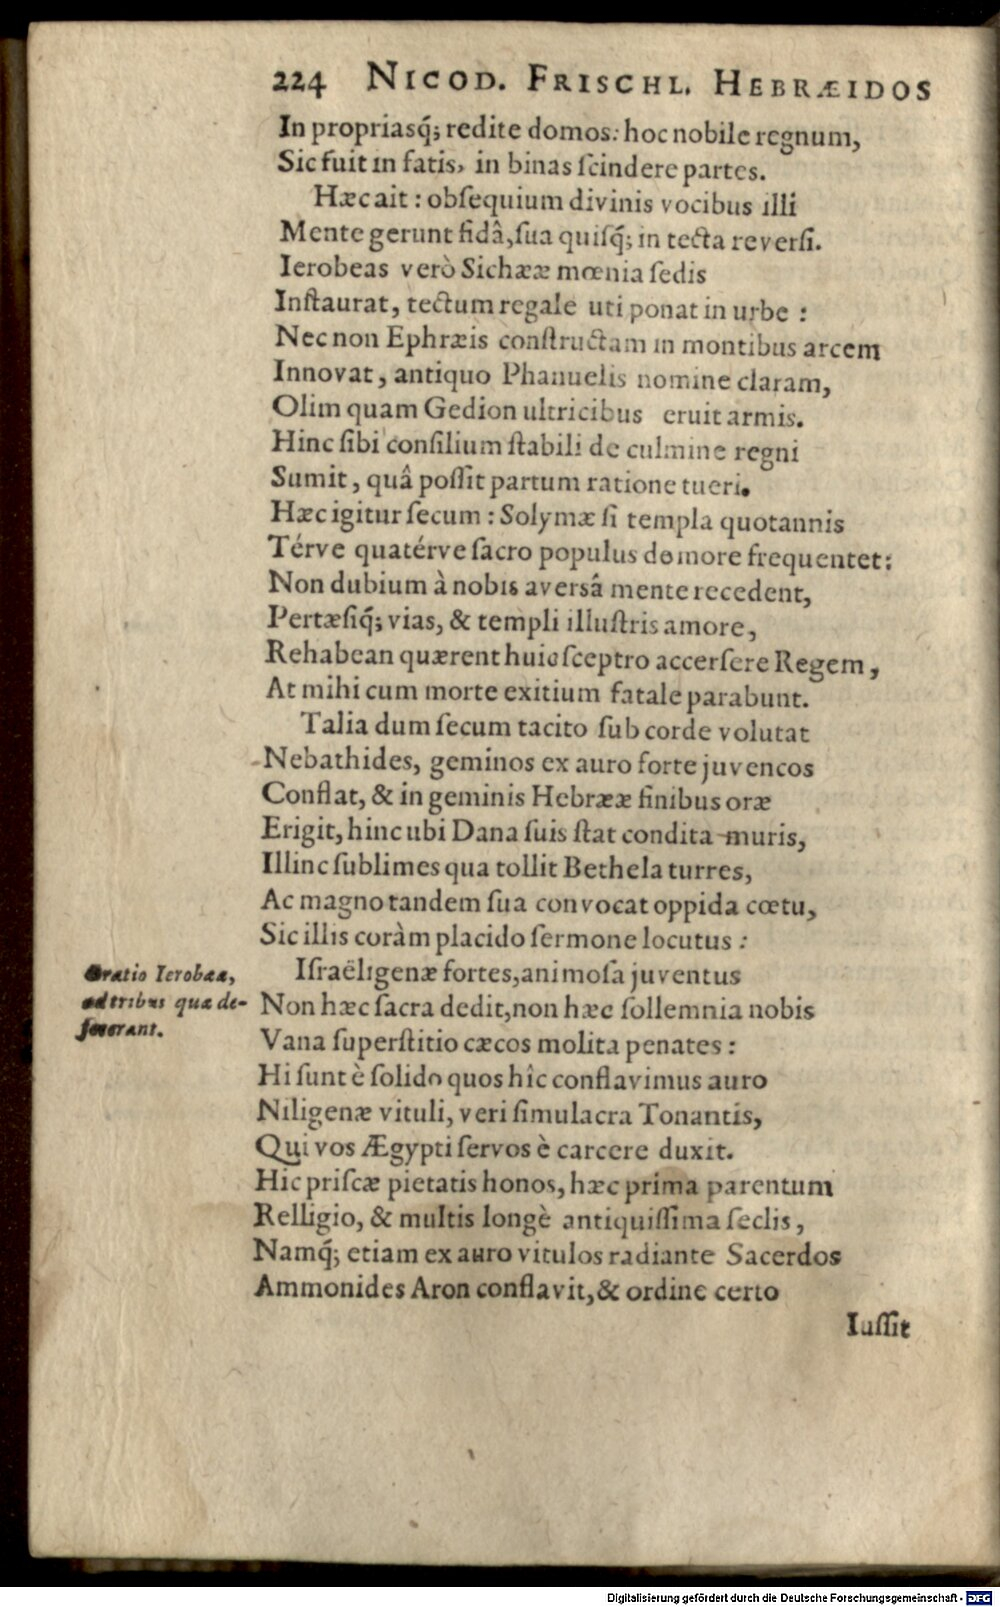 224 NICOD. FRISCHL. HEBRÆIDOS
In propriasq́; redite domos: hoc nobile regnum,
Sic fuit in fatis, in binas ſcindere partes.
Hæc ait: obſequium divinis vocibus illi
Mente gerunt fidâ, ſua quiſq́; in tecta reverſi.
Ierobeas verò Sichææ mœnia ſedis
Inſtaurat, tectum regale uti ponat in urbe :
Nec non Ephræis conſtructam in montibus arcem
Innovat, antiquo Phanuelis nomine claram,
Olim quam Gedion ultricibus eruit armis.
Hinc ſibi conſilium ſtabili de culmine regni
Sumit, quâ poſſit partum ratione tueri.
Hæc igitur ſecum: Solymæ ſi templa quotannis
Térve quatérve ſacro populus de more frequentet:
Non dubium à nobis averſâ mente recedent,
Pertæſiq́; vias, & templi illuſtris amore,
Rehabean quærent huic ſceptro accerſere Regem,
At mihi cum morte exitium fatale parabunt.
Talia dum ſecum tacito ſub corde volutat
Nebathides, geminos ex auro forte juvencos
Conflat, & in geminis Hebrææ finibus oræ
Erigit, hinc ubi Dana ſuis ſtat condita muris,
Illinc ſublimes qua tollit Bethela turres,
Ac magno tandem ſua convocat oppida cœtu,
Sic illis coràm placido ſermone locutus :
Oratio Ierobææ,
ad tribus quæ de-
fecerant.
Iſraëligenæ fortes, animoſa juventus
Non hæc ſacra dedit, non hæc ſollemnia nobis
Vana ſuperſtitio cæcos molita penates :
Hi ſunt è ſolido quos hîc conflavimus auro
Niligenæ vituli, veri ſimulacra Tonantis,
Qui vos Ægypti ſervos è carcere duxit.
Hic priſcæ pietatis honos, hæc prima parentum
Relligio, & multis longè antiquiſſima ſeclis,
Namq́; etiam ex auro vitulos radiante Sacerdos
Ammonides Aron conflavit, & ordine certo
Iuſſit
Digitalisierung gefördert durch die Deutsche Forschungsgemeinschaft - DFG